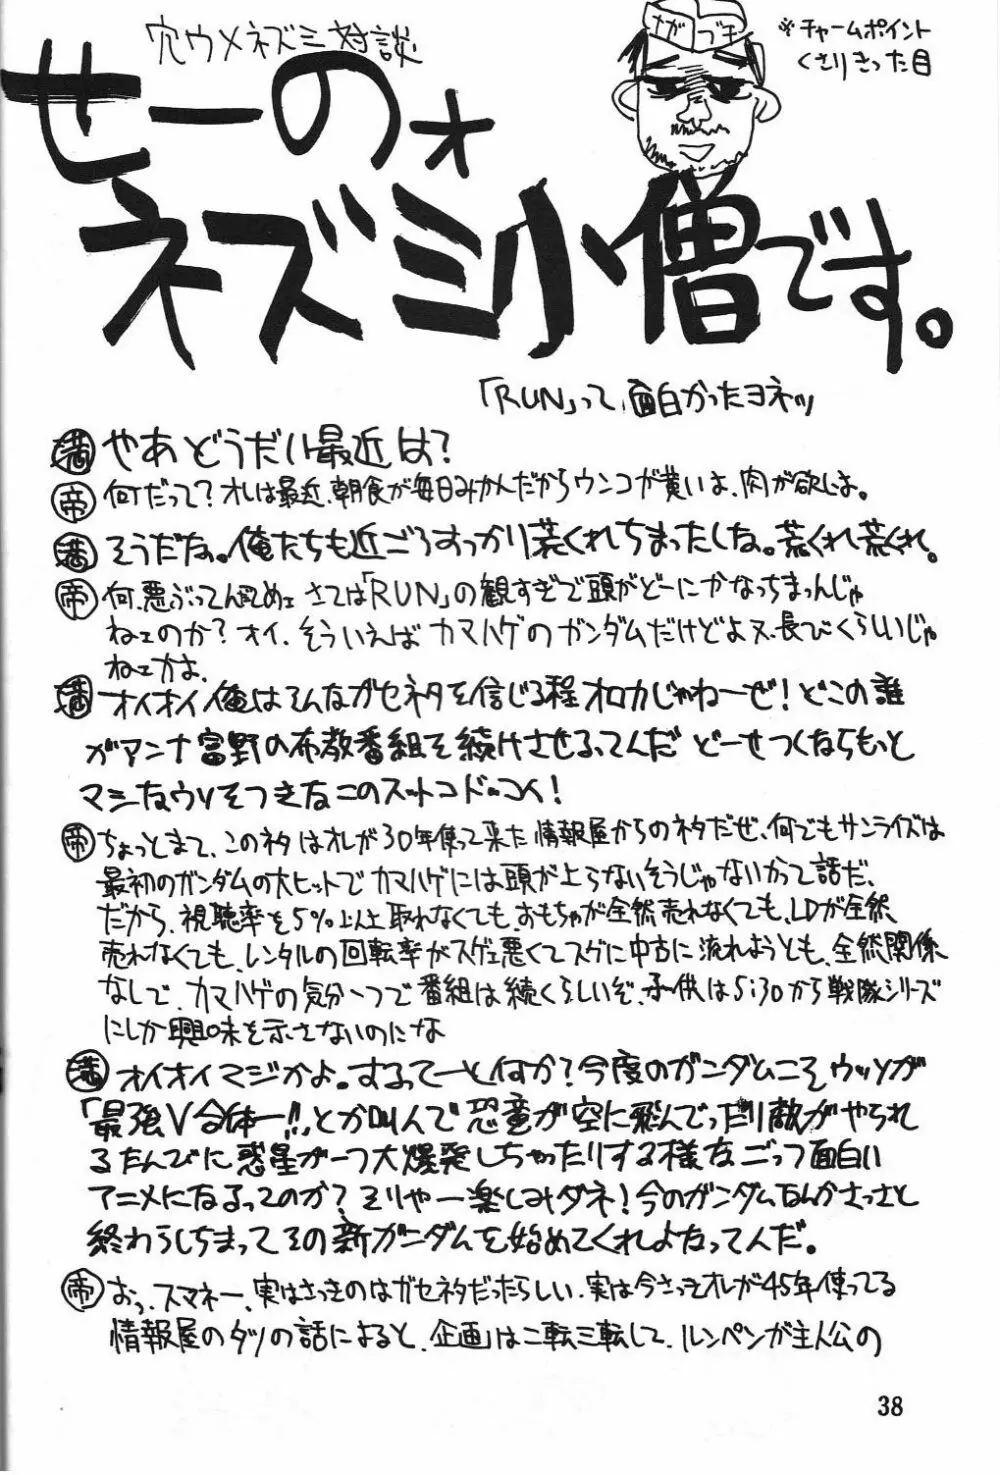 穴ウメネズミ対談
せーのォ
ネズミ小僧です。
※チャームポイント
くさりきった目
「RUN」って、面白かったヨネッ
満 やあどうだい最近は?
帝 何だって?オレは最近、朝食が毎日みかんだからウンコが黄いよ、肉が欲しよ。
満 そうだな。俺たちも近ごろすっかり荒くれちまったしな。荒くれ荒くれ。
帝 何、悪ぶってんだてめェ さては「RUN」の観すぎで頭がどーにかなっちまったんじゃ
ねェのか?オイ、そういえばカマハゲのガンダムだけどよ又、長びくらしいじゃ
ねェかよ。
満 オイオイ俺はそんなガセネタを信じる程オロカじゃねーぜ!どこの誰
がアンナ富野の布教番組を続けさせるってんだ どーせつくならもっと
マシなウソをつきなこのスットコドッコイ!
帝 ちょっとまて、このネタはオレが30年使って来た情報屋からのネタだぜ、何でもサンライズは
最初のガンダムの大ヒットでカマハゲには頭が上らないそうじゃないかって話だ、
だから、視聴率を5%以上取れなくても、おもちゃが全然売れなくても、LDが全然、
売れなくても、レンタルの回転率がスゲェ悪くてスグに中古に流れようとも、全然関係
なしで、カマハゲの気分一つで番組は続くらしいぞ、子供は5:30から戦隊シリーズ
にしか興味を示さないのにな
満 オイオイマジかよ。するってーと何か?今度のガンダムこそウッソが
「最強V合体ー!!」とか叫んで恐竜が空に飛んでったり敵がやられ
るたんびに惑星が一つ大爆発しちゃったりする様なごっつ面白い
アニメになるってのか?そりゃー楽しみダネ!今のガンダムなんかさっさと
終わらしちまってその新ガンダムを始めてくれよなってんだ。
帝 おっ、スマネー、実はさっきのはガセネタだったらしい、実は今さっきオレが45年使ってる
情報屋のダツの話によると、企画は二転三転して、ルンペンが主人公の
38